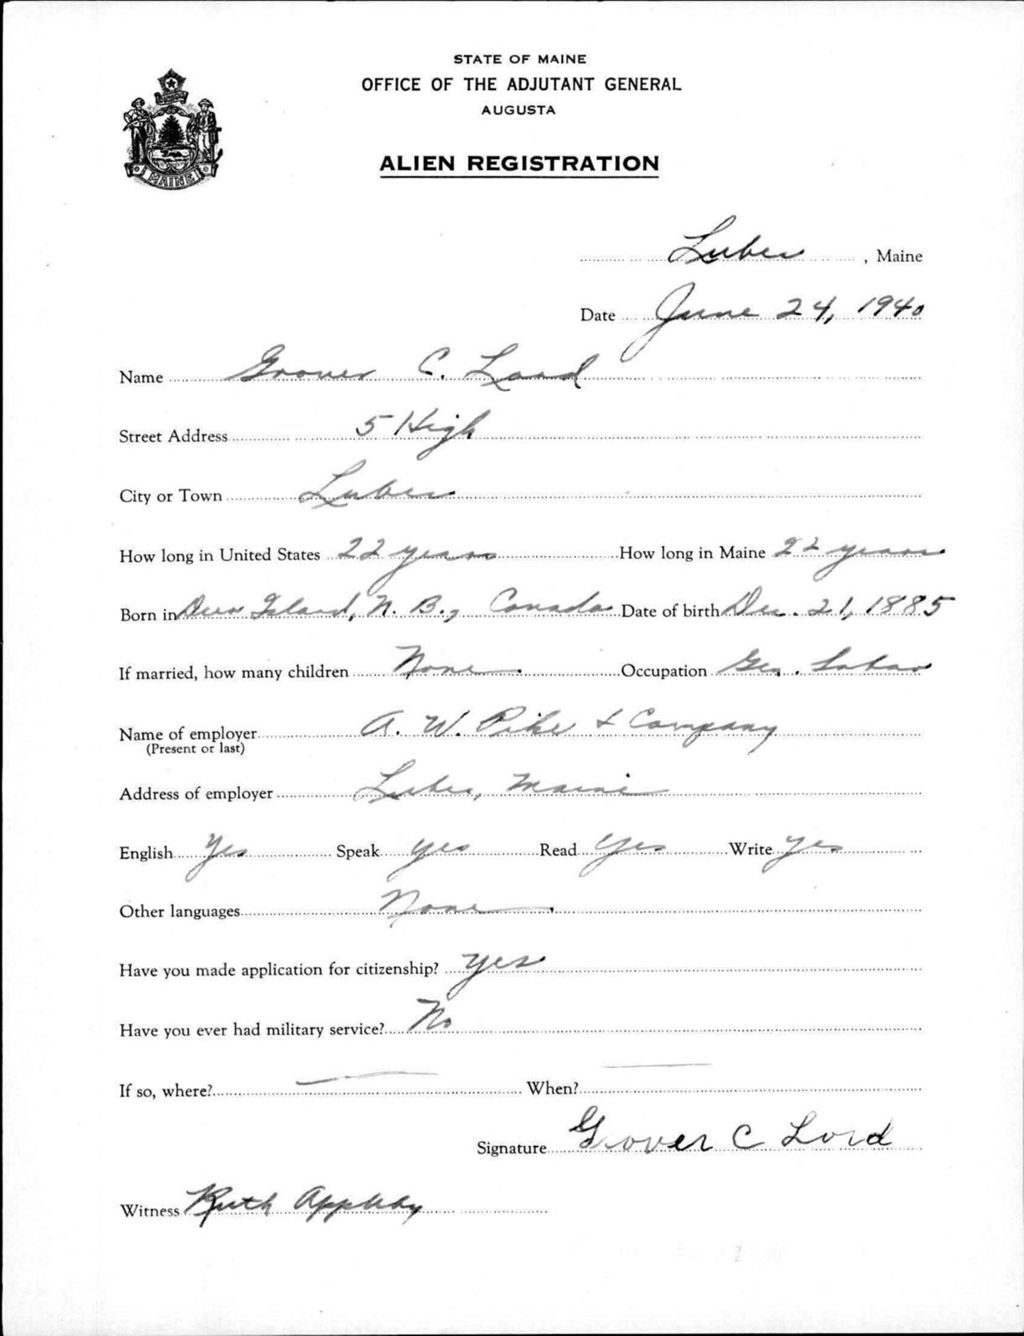 STATE OF MAINE
OFFICE OF THE ADJUTANT GENERAL
AUGUSTA
ALIEN REGISTRATION
MAINE
Lubec, Maine
Date June 24, 1940
Name Grover C. Lord
Street Address 5 High
City or Town Lubec
How long in United States 22 years How long in Maine 22 years
Born in Deer Island, N. B., Canada Date of birth Dec. 21, 1885
If married, how many children None. Occupation Gen. Labor
Name of employer A. W. Pike & Company
(Present or last)
Address of employer Lubec, Maine
English Yes Speak Yes Read Yes Write Yes
Other languages None.
Have you made application for citizenship? Yes
Have you ever had military service? No
If so, where? — When? —
Signature Grover C Lord
Witness Ruth Appleby